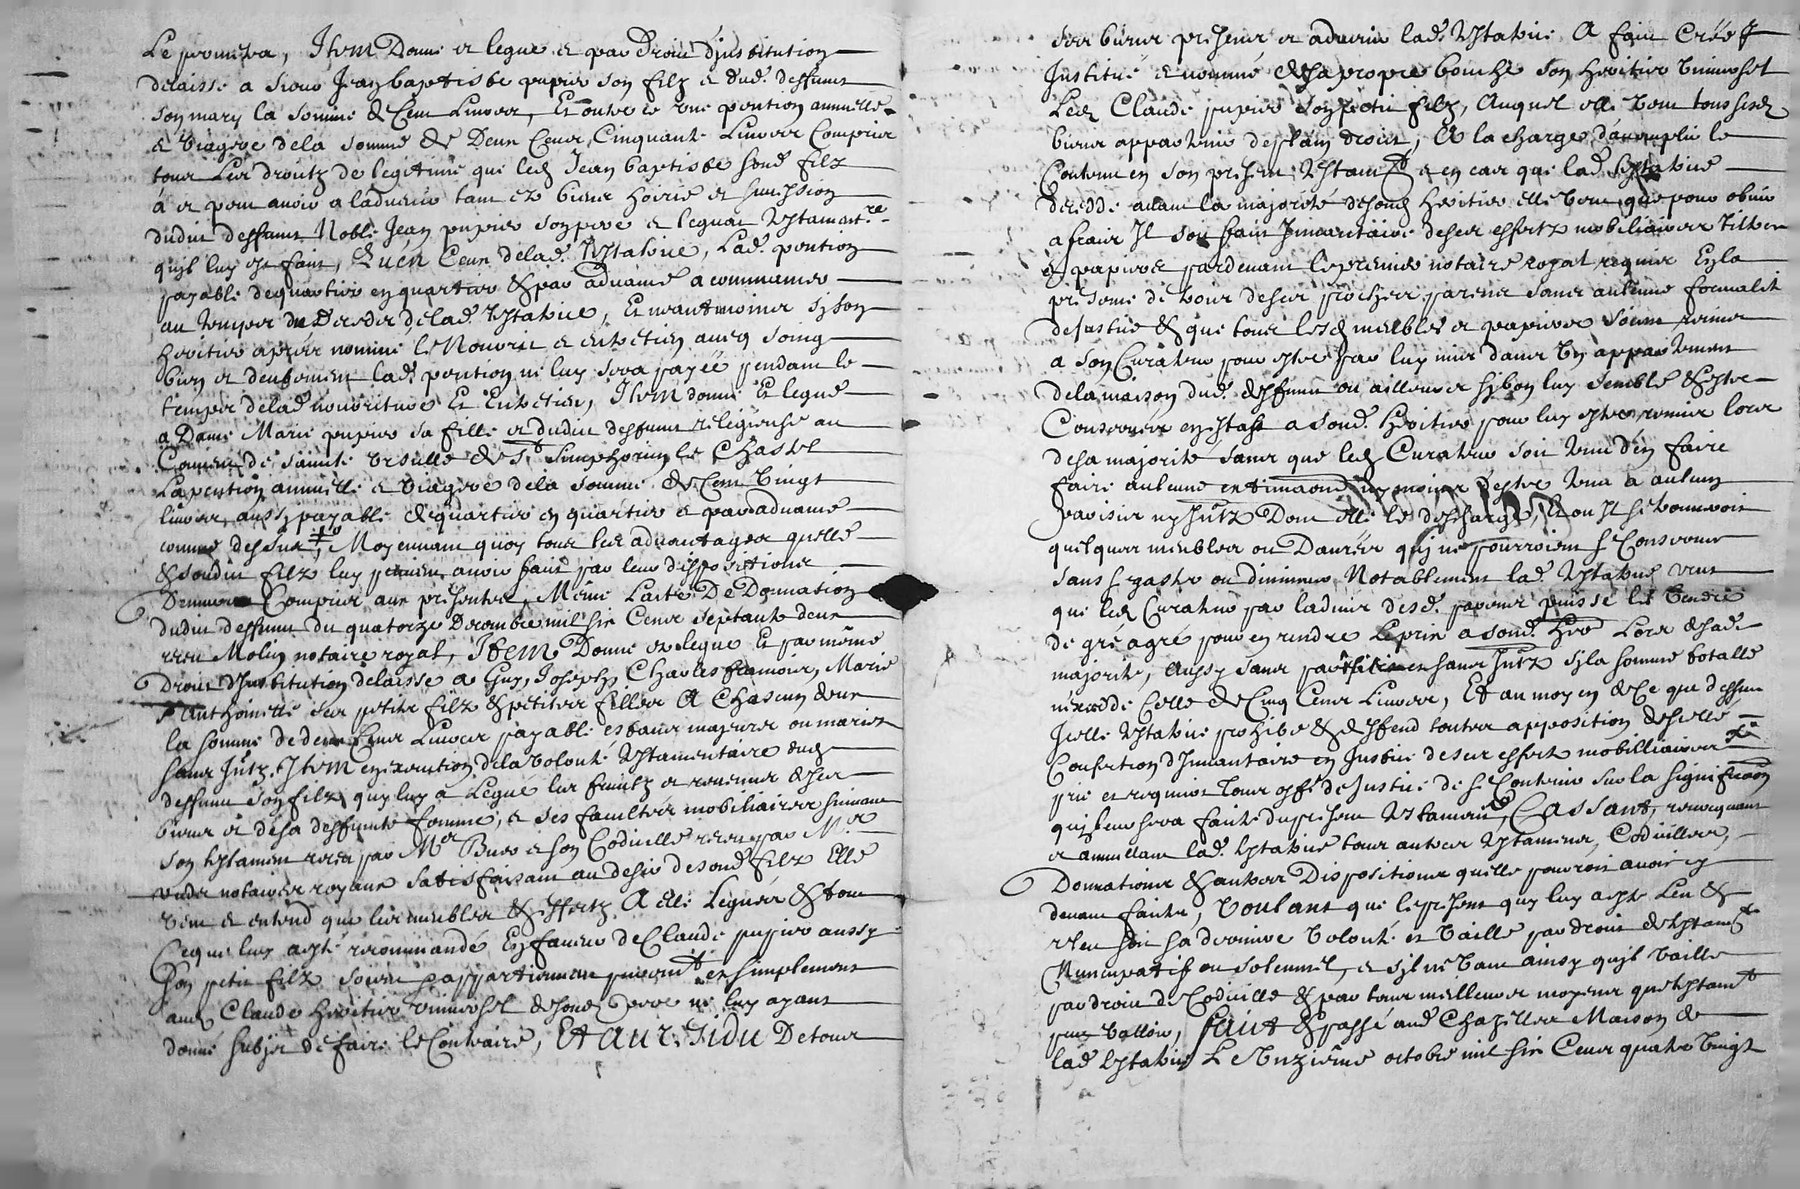 Le permettra, Item Donne et legue et par Droit d'institution
delaisse a sieur Jean baptiste pupier son filz et dud. deffunt
son mary la somme de Cent Livres, Et outre ce une pention annuelle
et viagere de la somme de Deux Cens Cinquante Livres Compris
tous Les droitz de legitime que led Jean baptiste sond filz
à et peut avoir a ladvenir tant ez biens hoirie et succession
dudit deffunt Noble Jean pupier son pere et legat testament.re
quil luy est fait, quen Ceux de lad. testatrice, Lad. pention
payable de quartier en quartier & par advance a commancer
au temps du Deces de lad. testatrice, Et neantmoins sy son
heritier apres nommé le Nourrit et entretien avecq soing
bien et deubement lad. pention ne luy sera payée pendant le
temps de lad nourriture Et Entretien, Item donne Et legue
a Dame Marie pupier sa fille et dudit deffunt religieuse au
Convent de Sainte Ursulle de St Simphorien le Chastel
La pention annuelle et viagere de la somme de Cent Vingt
livres aussy payable de quartier en quartier et par advance
comme dessus, Moyennant quoy tous les advantages quelle
& sondit filz luy peuvent avoir fait par leurs dispositions
Demeurent Compris aux presentes, Même Lacte De Donnation
dudit deffunt du quatorze Decembre mil six Cens septante deux
receu Molin notaire royal, Item Donne et legue Et par même
Droit d'Institution delaisse a Guy, Joseph, Charles francois, Marie
& Anthoinette ses petits filz & petites filles A Chascun deux
la somme de deux Cens Livres payable estans majeurs ou mariez
sans Jntz. Item en execution de la volonté testamentaire dud
deffunt son filz quy luy à Legué les fruitz et revenus de ses
biens et de sa deffunte femme, et ses facultes mobiliaires suivant
son testament receu par Me Buer et son Codicille receu par Me
notaires royaux satisfaisant au desir de sond. filz Elle
veut et entend que les meubles & effectz A elle Legués & tout
Ce qui luy a esté recommandé En faveur de Claude pupier aussy
Son petit filz soient & appartiennent purement et simplement
aud Claude heritier universel de sond pere ne luy ayant
donné subjet de faire le Contraire, Et au residu De tous
ses biens presens et advenir lad. testatrice A fait Créé &
Institué et nommé de sa propre bouche son heritier universel
Led Claude pupier son petit filz, Auquel elle veut tous sesd
biens appartenir de plain droit, A la charge d'accomplir le
Contenu en son present testamt et en cas que lad. testatrice
decedde avant la majorité de sond heritier elle veut que pour obvier
a fraix Il soit fait Jnvantaire de ses effectz mobiliaires tiltres
& papiers pardevant le premier notaire royal requis En la
presence de deux de ses proches parens sans aulcune formalité
de Justice & que tous lesd meubles et papiers soient remis
a son Curateur pour estre par luy mis dans un appartement
de la maison dud. deffunt ou ailleurs sy bon luy semble & estre
Conservés en estat a sond. heritier pour luy estre remis lors
de sa majorité sans que led Curateur soit tenu d'en faire
faire aulcune estimaon ny moins d'estre tenu à aulcun
ny Jntz Dont elle le descharge, Et ou Il se trouveroit
quelques meubles ou Danrées quy ne pourroient se Conserver
sans se gaster ou diminuer Notablement lad. testatrice veut
que led Curateur par ladvis desd. parens puisse les vendre
de gré agré pour en rendre le prix a sond. her Lors de sad.
majorité, Aussy sans Jntz sy la somme totalle
nexcedde Celle de Cinq Cens Livres, Et au moyen de Ce que dessus
Icelle testatrice prohibe & deffend toutes apposition de scellé
Confection d'Jnvantaire en Justice de ses effects mobilliaires
prie et requiert tous off. de Justice de se Contenir sur la signiffiaon
quy leur sera faite du present testament, Cassant, revocquant
et annullant lad. testatrice tous autres testamens, Codicilles,
Donnations & autres Dispositions quelle pourroit avoir cy
devant faites, Voulant que le present quy luy a esté Leu &
releu soit sa derniere volonté et vaille par droit de testamt
Nuncupatif ou solemnel, et sil ne vaut ainsy quil vaille
par droit de Codicille & par tous meilleurs moyens que testamt
peut valloir, fait & passé aud Chazelles Maison de
lad testatrice Le Unzieme octobre mil six Cens quatre Vingt